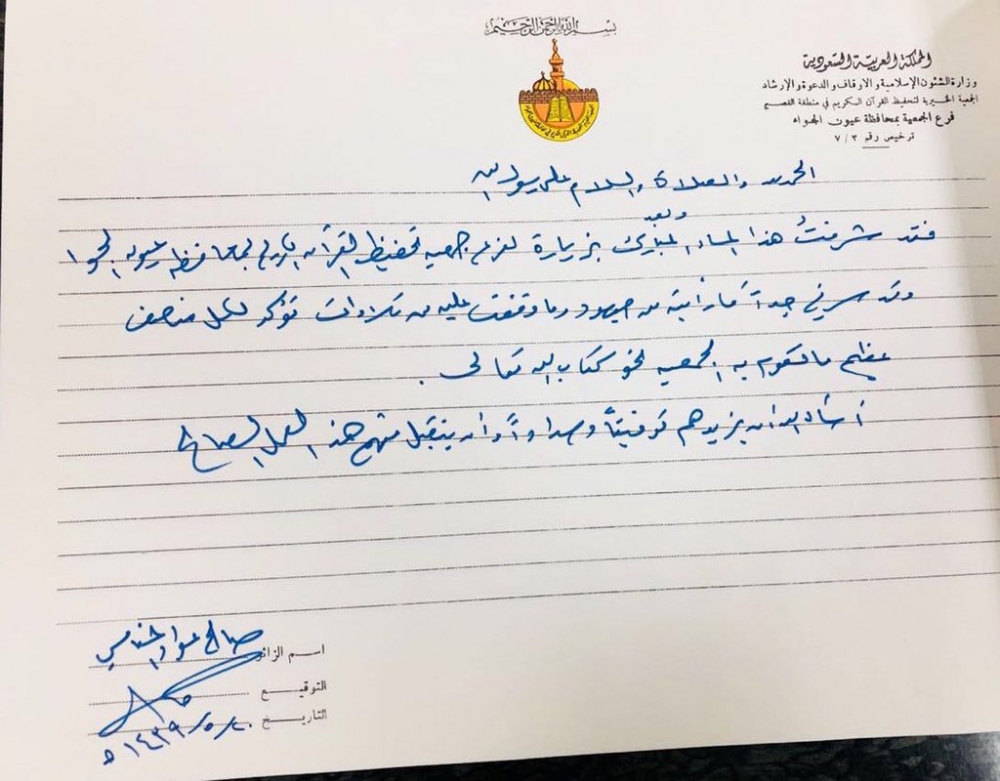 بسم الله الرحمن الرحيم
المملكة العربية السعودية
وزارة الشئون الإسلامية والأوقاف والدعوة والإرشاد
الجمعية الخيرية لتحفيظ القرآن الكريم في منطقة القصيم
فرع الجمعية بمحافظة عيون الجواء
ترخيص رقم ٧/٣
الحمد لله والصلاة والسلام على رسول الله
وبعد
فقد شرفتُ هذا المساء المبارك بزيارة لفرع جمعية تحفيظ القرآن الكريم بمحافظة عيون الجوا
وقد سرني جداً ما رأيته من جهود وما وقفت عليه من تلاوات تؤكد لكل منصف
عظيم ما تقوم به الجمعية نحو كتاب الله تعالى .
أسأل الله أن يزيدهم توفيقاً وسداداً وأن يتقبل منهم هذا العمل الصالح
اسم الزائر صالح عواد
التوقيع
التاريخ ١٤٣٩/٥/٢٠ هـ